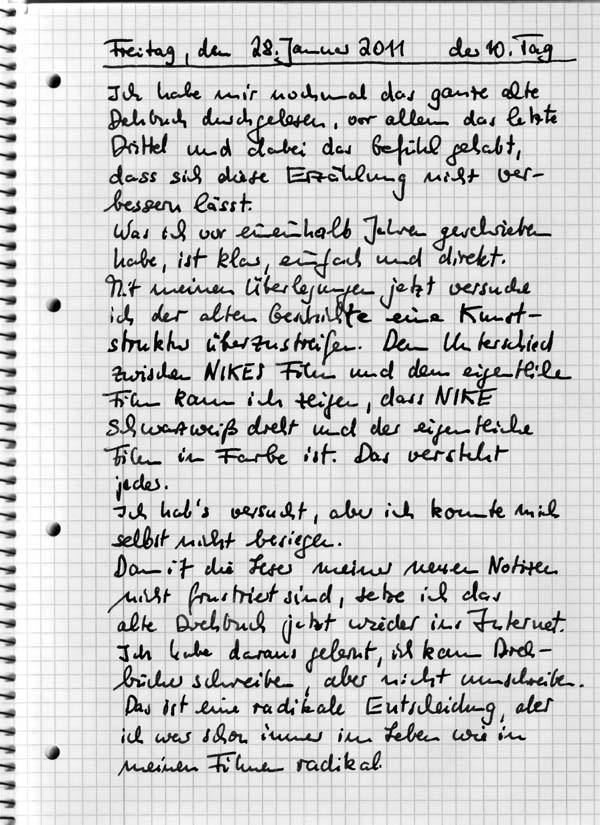 Freitag, den 28. Januar 2011 der 10. Tag
Ich habe mir nochmal das ganze alte
Drehbuch durchgelesen, vor allem das letzte
Drittel und dabei das Gefühl gehabt,
dass sich diese Erzählung nicht ver-
bessern lässt.
Was ich vor eineinhalb Jahren geschrieben
habe, ist klar, einfach und direkt.
Mit meinen Überlegungen jetzt versuche
ich der alten Geschichte eine Kunst-
struktur überzustreifen. Den Unterschied
zwischen NIKES Film und dem eigentliche
Film kann ich zeigen, dass NIKE
Schwarzweiß dreht und der eigentliche
Film in Farbe ist. Das versteht
jeder.
Ich hab's versucht, aber ich konnte mich
selbst nicht besiegen.
Damit die Leser meiner neuen Notizen
nicht frustriert sind, setze ich das
alte Drehbuch jetzt wieder ins Internet.
Ich habe daraus gelernt, ich kann Dreh-
bücher schreiben, aber nicht umschreiben.
Das ist eine radikale Entscheidung, aber
ich war schon immer im Leben wie in
meinen Filmen radikal.